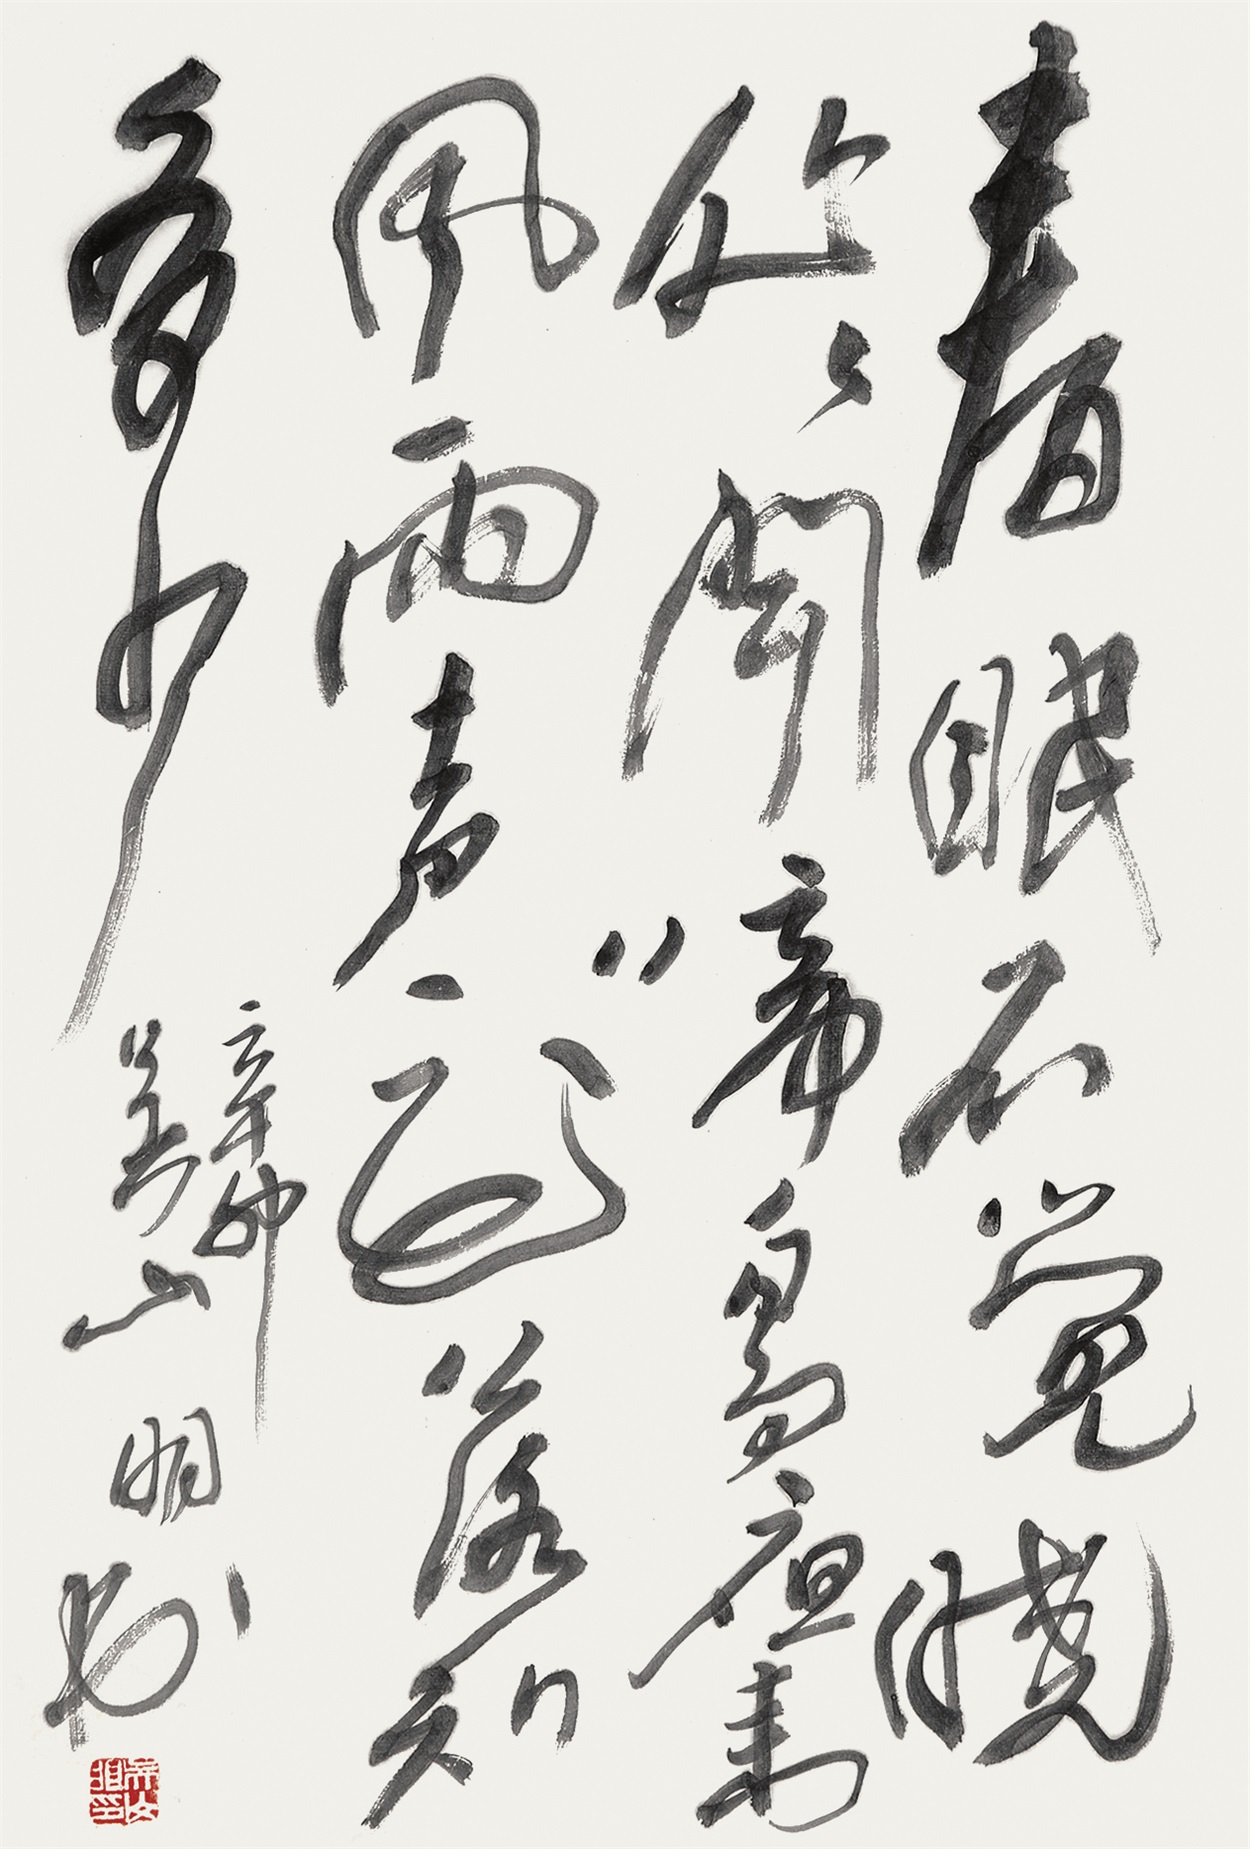 春眠不觉晓
处々闻啼鳥夜来
风雨声花落知
多少
辛卯
吴山明书